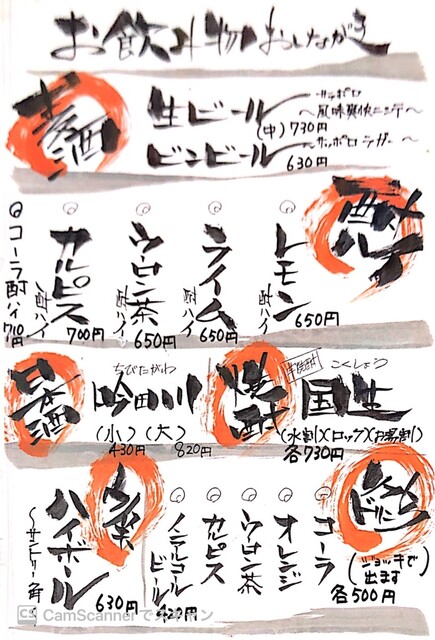 お飲み物 おしながき
麦酒
生ビール サッポロ
〜風味爽快ニシテ〜
(中) 730円
ビンビール 〜サッポロラガー〜
630円
酎ハイ
レモン酎ハイ 650円
ライム酎ハイ 650円
ウーロン茶酎ハイ 650円
カルピス酎ハイ 700円
コーラ酎ハイ 710円
日本酒
ちびたがわ
吟田川
(小) (大)
430円 820円
焼酎
芋焼酎
こくしょう
国生
(水割)(ロック)(お湯割)
各730円
ハイボール
〜サントリー角〜
630円
ソフトドリンク
(ジョッキで出ます)
各500円
コーラ
オレンジ
ウーロン茶
カルピス
ノンアルコールビール
420円
CS CamScanner でスキャン